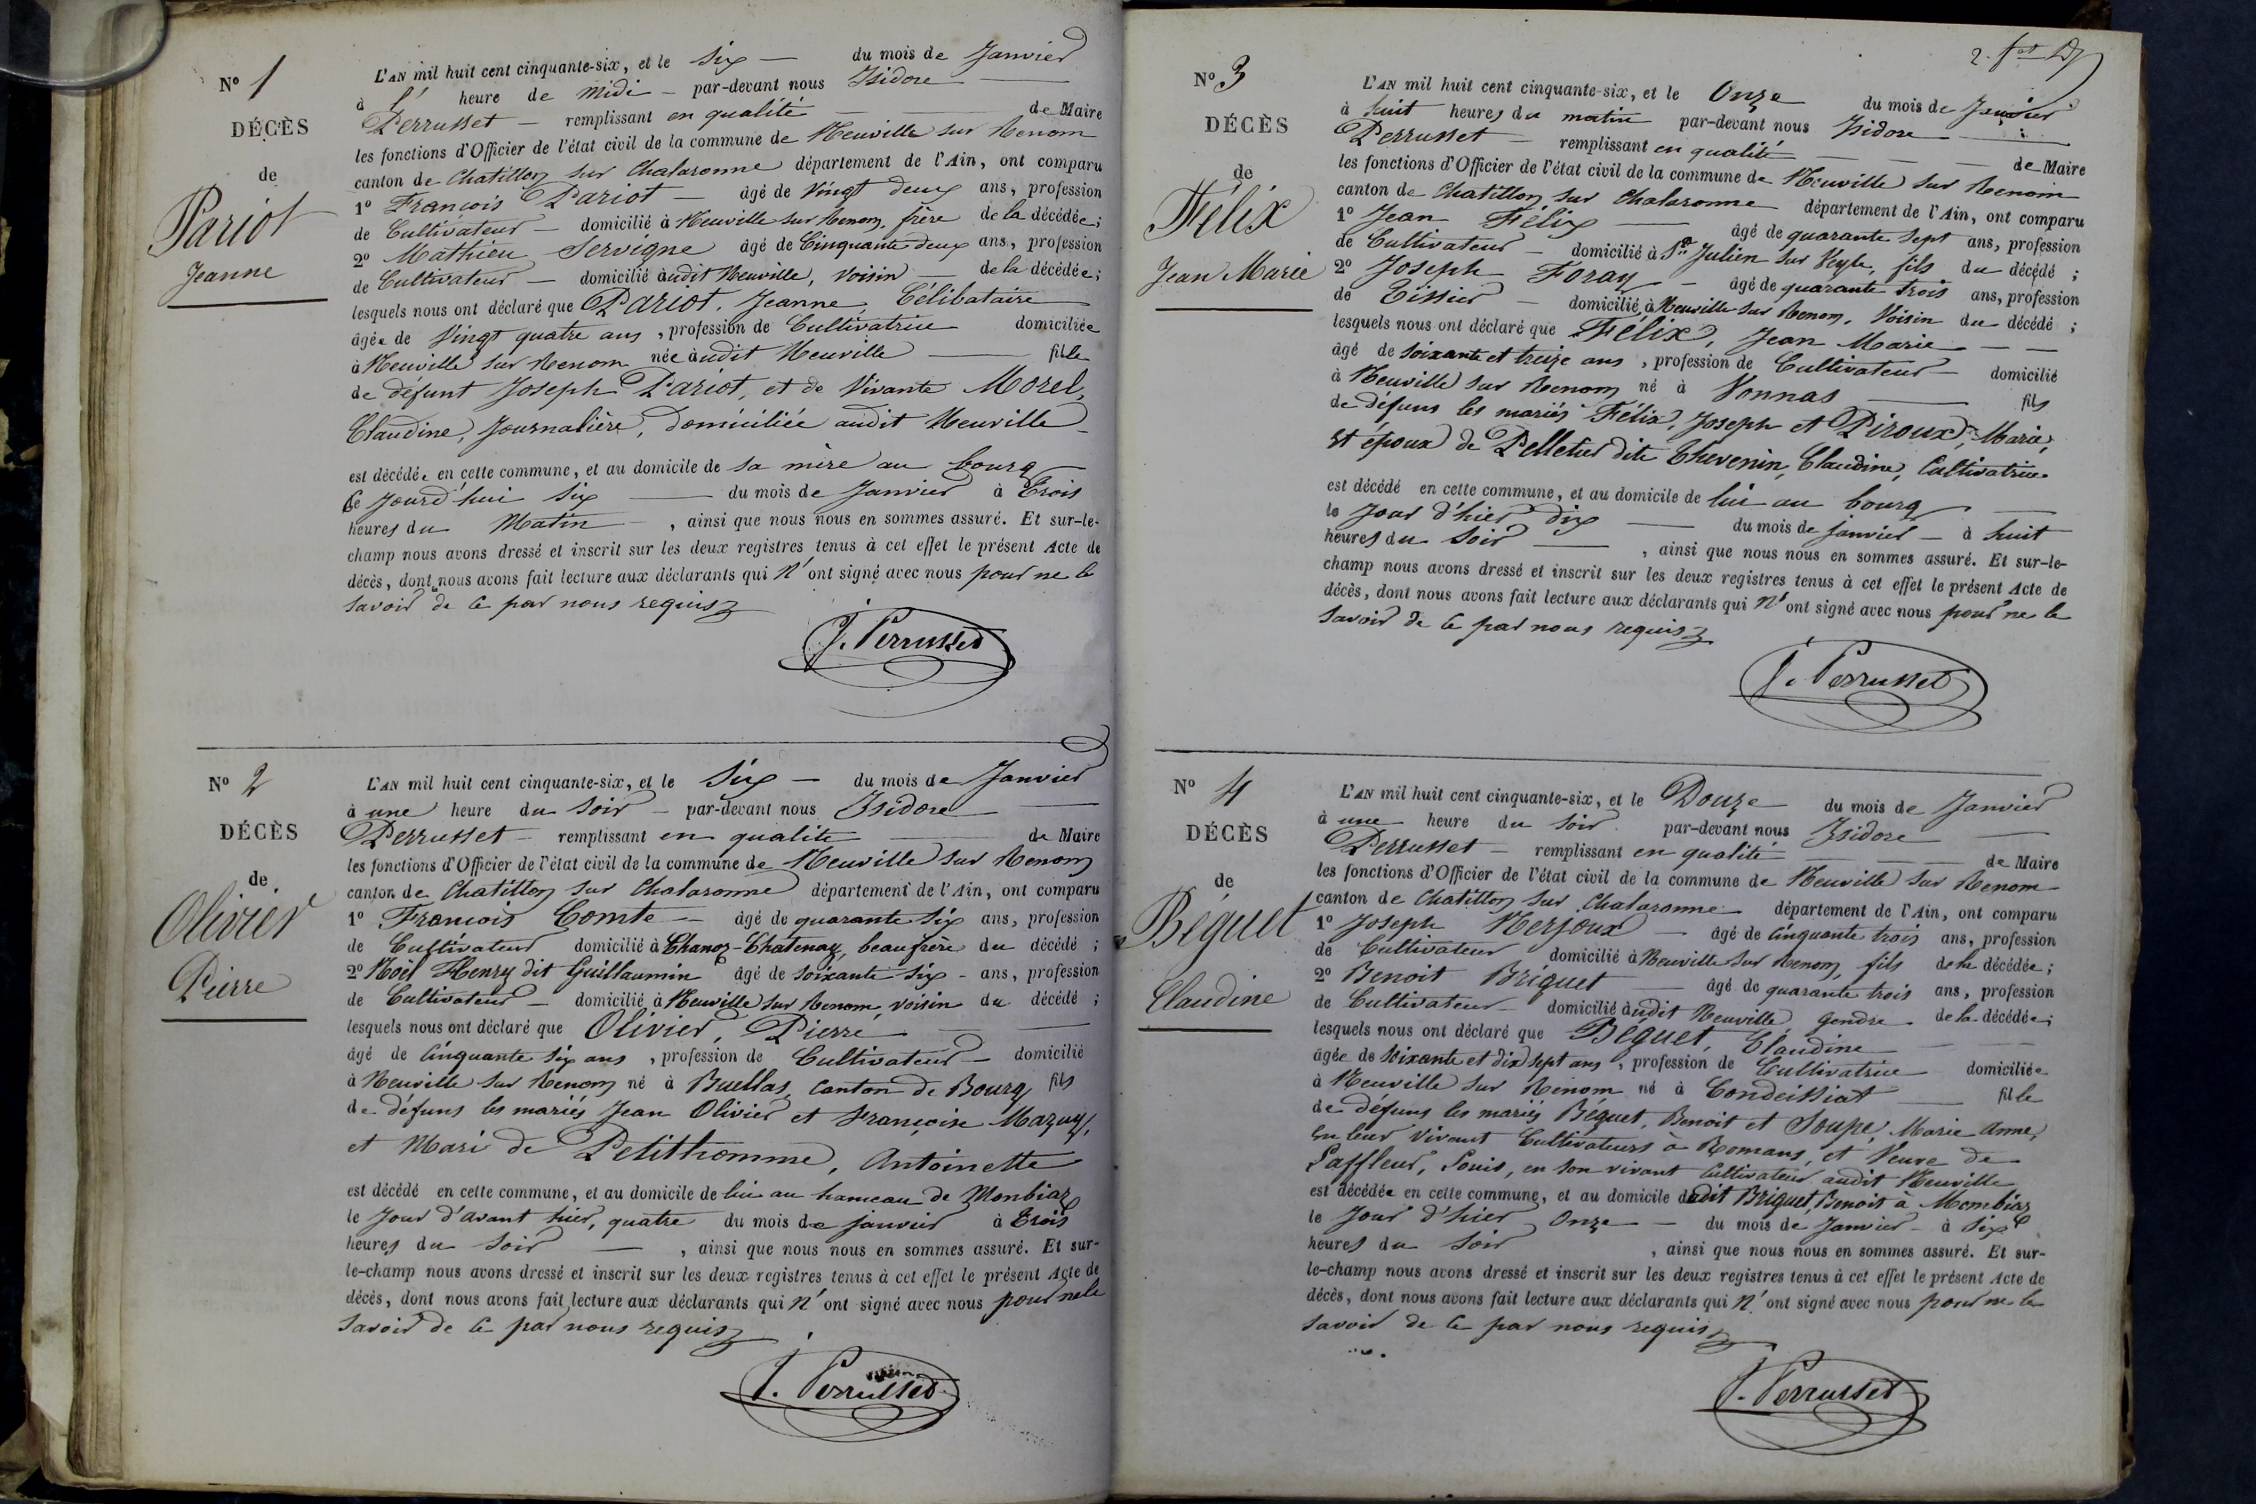 N° 1
DÉCÈS
de
Pariot
Jeanne
L'AN mil huit cent cinquante-six, et le six — du mois de Janvier
à l' heure de midi — par-devant nous Isidore —
Perrusset — remplissant en qualité — de Maire
les fonctions d'Officier de l'état civil de la commune de Neuville sur Renom
canton de Chatillon sur Chalaronne département de l'Ain, ont comparu
1° François Pariot — âgé de Vingt deux ans, profession
de Cultivateur — domicilié à Neuville sur Renom, frère de la décédée;
2° Mathieu Servigne âgé de Cinquante deux ans, profession
de Cultivateur — domicilié audit Neuville, voisin — de la décédée;
lesquels nous ont déclaré que Pariot, Jeanne, Célibataire
âgée de Vingt quatre ans, profession de Cultivatrice domiciliée
à Neuville sur Renom née audit Neuville — fille
de défunt Joseph Pariot, et de Vivante Morel,
Claudine, Journalière, Domiciliée audit Neuville —
est décédée en cette commune, et au domicile de sa mère au bourg
ce jourd'hui six — du mois de Janvier à Trois
heures du Matin —, ainsi que nous nous en sommes assuré. Et sur-le-
champ nous avons dressé et inscrit sur les deux registres tenus à cet effet le présent Acte de
décès, dont nous avons fait lecture aux déclarants qui n'ont signé avec nous pour ne le
savoir de ce par nous requis
J. Perrusset
N° 2
DÉCÈS
de
Olivier
Pierre
L'AN mil huit cent cinquante-six, et le Six — du mois de Janvier
à une heure du soir — par-devant nous Isidore —
Perrusset — remplissant en qualité — de Maire
les fonctions d'Officier de l'état civil de la commune de Neuville sur Renom
canton de Chatillon sur Chalaronne département de l'Ain, ont comparu
1° François Comte — âgé de quarante six ans, profession
de Cultivateur domicilié à Chanoz-Chatenay, beaufrère du décédé;
2° Noël Henry dit Guillaumin âgé de soixante six - ans, profession
de Cultivateur — domicilié à Neuville sur Renom, voisin du décédé;
lesquels nous ont déclaré que Olivier, Pierre —
âgé de Cinquante six ans, profession de Cultivateur — domicilié
à Neuville sur Renom né à Buellas, canton de Bourg fils
de défuns les mariés Jean Olivier et Françoise Mazuy,
et Mari de Petithomme, Antoinette
est décédé en cette commune, et au domicile de lui au hameau de Monbiaz
le Jour d'avant hier, quatre du mois de janvier à Trois
heures du soir —, ainsi que nous nous en sommes assuré. Et sur-
le-champ nous avons dressé et inscrit sur les deux registres tenus à cet effet le présent Acte de
décès, dont nous avons fait lecture aux déclarants qui n'ont signé avec nous pour ne le
savoir de ce par nous requis
J. Perrusset
N° 3
DÉCÈS
de
Félix
Jean Marie
L'AN mil huit cent cinquante-six, et le Onze du mois de Janvier
à huit heures du matin par-devant nous Isidore —
Perrusset — remplissant en qualité — de Maire
les fonctions d'Officier de l'état civil de la commune de Neuville sur Renom
canton de Chatillon sur Chalaronne département de l'Ain, ont comparu
1° Jean Félix — âgé de quarante sept ans, profession
de Cultivateur — domicilié à St Julien sur Veyle, fils du décédé;
2° Joseph Foray — âgé de quarante trois ans, profession
de Tissier — domicilié à Neuville sur Renom, Voisin du décédé;
lesquels nous ont déclaré que Félix, Jean Marie —
âgé de soixante et treize ans, profession de Cultivateur — domicilié
à Neuville sur Renom né à Vonnas — fils
de défuns les mariés Félix, Joseph et Piroux, Marie,
et époux de Pelletier dite Thevenin, Claudine, Cultivatrice
est décédé en cette commune, et au domicile de lui au bourg —
le Jour d'hier dix — du mois de janvier — à huit
heures du soir —, ainsi que nous nous en sommes assuré. Et sur-le-
champ nous avons dressé et inscrit sur les deux registres tenus à cet effet le présent Acte de
décès, dont nous avons fait lecture aux déclarants qui n'ont signé avec nous pour ne le
savoir de ce par nous requis
J. Perrusset
N° 4
DÉCÈS
de
Béguet
Claudine
L'AN mil huit cent cinquante-six, et le Douze du mois de Janvier
à une heure du soir par-devant nous Isidore —
Perrusset — remplissant en qualité — de Maire
les fonctions d'Officier de l'état civil de la commune de Neuville sur Renom
canton de Chatillon sur Chalaronne département de l'Ain, ont comparu
1° Joseph Merjoux — âgé de Cinquante trois ans, profession
de Cultivateur domicilié à Neuville sur Renom, fils de la décédée;
2° Benoit Briquet — âgé de quarante trois ans, profession
de Cultivateur — domicilié audit Neuville, Gendre de la décédée;
lesquels nous ont déclaré que Béguet, Claudine —
âgée de soixante et dix sept ans, profession de Cultivatrice domiciliée
à Neuville sur Renom né à Condeissiat — fille
de défuns les mariés Béguet, Benoit et Soupe, Marie Anne,
en leur vivant Cultivateurs à Romans, et Veuve de
Laffleur, Louis, en son vivant Cultivateur audit Neuville
est décédée en cette commune, et au domicile dudit Briquet, Benoit à Mombiaz
le Jour d'hier Onze — du mois de Janvier — à Six
heures du soir, ainsi que nous nous en sommes assuré. Et sur-
le-champ nous avons dressé et inscrit sur les deux registres tenus à cet effet le présent Acte de
décès, dont nous avons fait lecture aux déclarants qui n'ont signé avec nous pour ne le
savoir de ce par nous requis
J. Perrusset